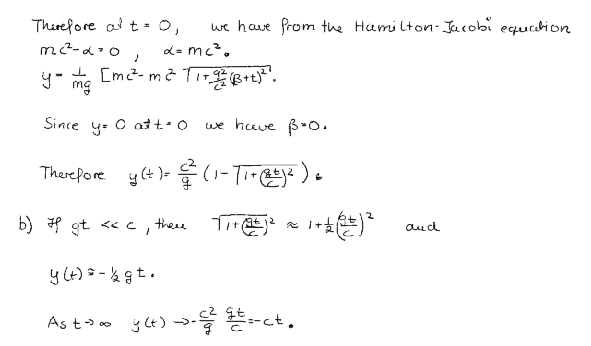 Therefore at t = 0, we have from the Hamilton-Jacobi equation
mc²-α=0, α=mc².
y = 1/mg [mc²-mc² √1+g²/c²(β+t)²].
Since y=0 at t=0 we have β=0.
Therefore y(t)= c²/g (1-√1+(gt/c)²).
b) If gt << c, then √1+(gt/c)² ≈ 1+½(gt/c)² and
y(t) ≈ -½gt.
As t→∞ y(t) → -c²/g gt/c = -ct.